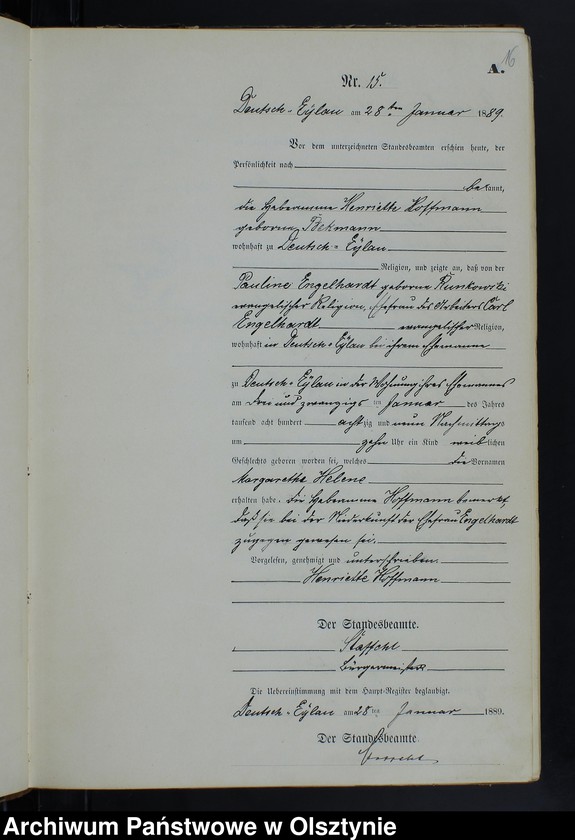 16
A.
Nr. 15.
Deutsch-Eylau am 28 ten Januar 1889.
Vor dem unterzeichneten Standesbeamten erschien heute, der
Persönlichkeit nach
bekannt,
die Hebeamme Henriette Hoffmann
geborene Bekmann
wohnhaft zu Deutsch-Eylau
Religion, und zeigte an, daß von der
Pauline Engelhardt geborne Runkowski
evangelischer Religion, Ehefrau des Arbeiters Carl
Engelhardt evangelischer Religion,
wohnhaft in Deutsch-Eylau bei ihrem Ehemanne
zu Deutsch-Eylau in der Wohnung ihres Ehemannes
am drei und zwanzigs ten Januar des Jahres
tausend acht hundert achtzig und neun Nachmittags
um zehn Uhr ein Kind weiblichen
Geschlechts geboren worden sei, welches die Vornamen
Margarethe Helene
erhalten habe. Die Hebeamme Hoffmann bemerkt,
daß sie bei der Niederkunft der Ehefrau Engelhardt
zugegen gewesen sei.
Vorgelesen, genehmigt und unterschrieben.
Henriette Hoffmann
Der Standesbeamte.
Bürgermeister
Die Uebereinstimmung mit dem Haupt-Register beglaubigt.
Deutsch-Eylau am 28 ten Januar 1889.
Der Standesbeamte
Archiwum Państwowe w Olsztynie